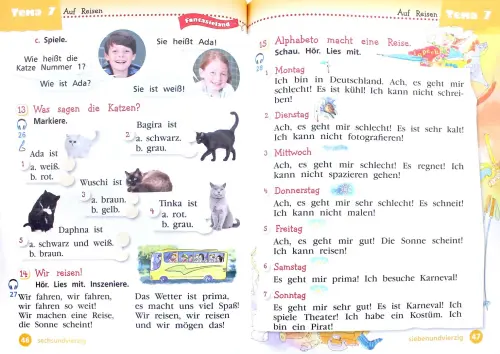 Тема 7 Auf Reisen
Fantasieland
c. Spiele.
Sie heißt Ada!
Wie heißt die
Katze Nummer 1?
Wie ist Ada?
Sie ist weiß!
13 Was sagen die Katzen?
Markiere.
26
Bagira ist
2 a. schwarz.
b. grau.
Ada ist
1 a. weiß.
b. rot.
Wuschi ist
3 a. braun.
b. gelb.
Tinka ist
4 a. rot.
b. grau.
Daphna ist
5 a. schwarz und weiß.
b. braun.
14 Wir reisen!
Hör. Lies mit. Inszeniere.
27
Wir fahren, wir fahren,
wir fahren so weit!
Wir machen eine Reise,
die Sonne scheint!
Das Wetter ist prima,
es macht uns viel Spaß!
Wir reisen, wir reisen
und wir mögen das!
46 sechsundvierzig
Auf Reisen Тема 7
15 Alphabeto macht eine Reise.
Schau. Hör. Lies mit.
28
1 Montag
Ich bin in Deutschland. Ach, es geht mir
schlecht! Es ist kühl! Ich kann nicht schrei-
ben!
2 Dienstag
Ach, es geht mir schlecht! Es ist sehr kalt!
Ich kann nicht fotografieren!
3 Mittwoch
Ach, es geht mir schlecht! Es regnet! Ich
kann nicht spazieren gehen!
4 Donnerstag
Ach, es geht mir sehr schlecht! Es schneit!
Ich kann nicht malen!
5 Freitag
Ach, es geht mir gut! Die Sonne scheint!
Ich kann reisen!
6 Samstag
Es geht mir prima! Ich besuche Karneval!
7 Sonntag
Es geht mir sehr gut! Es ist Karneval! Ich
spiele Theater! Ich habe ein Kostüm. Ich
bin ein Pirat!
siebenundvierzig 47